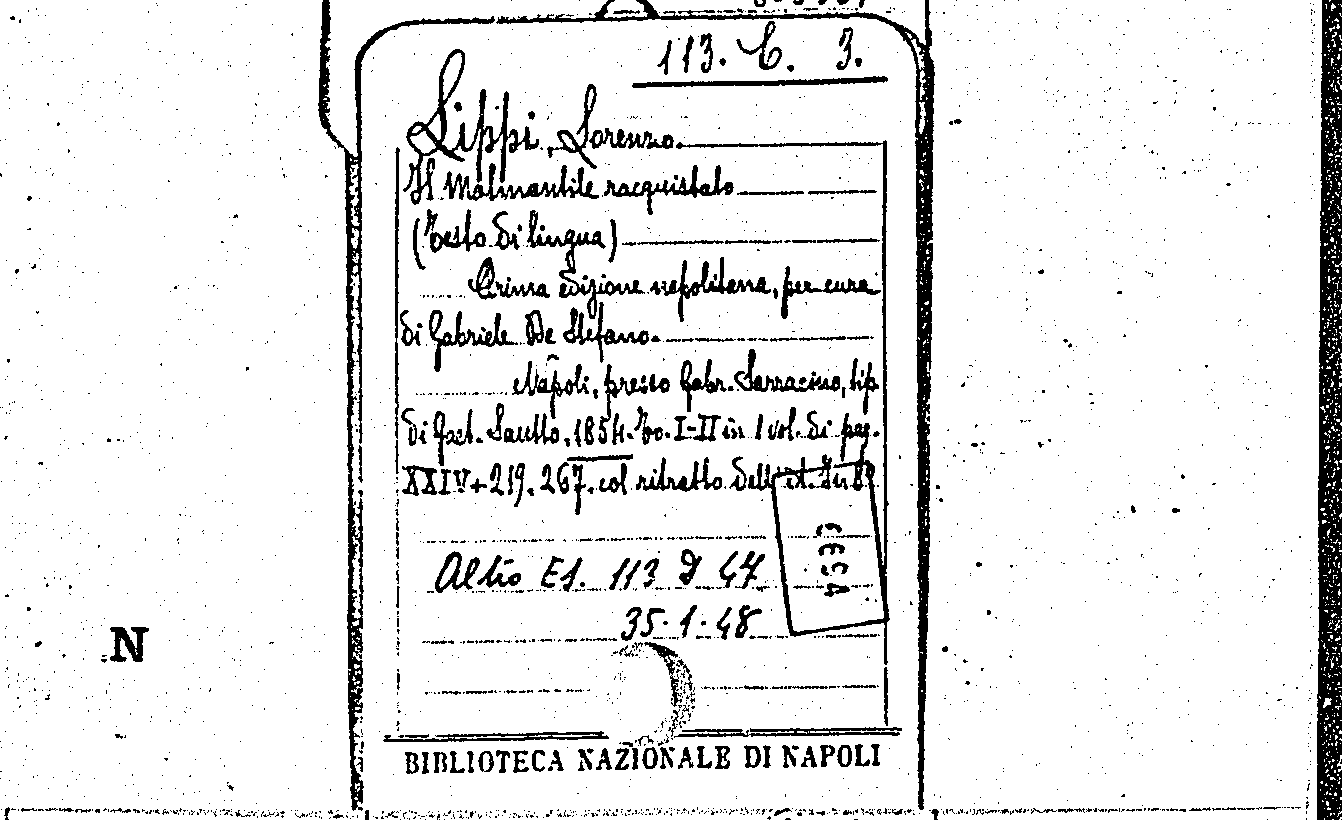 113. C. 3.
Lippi, Lorenzo.
Il Malmantile racquistato
(Testo di lingua)
Prima edizione napoletana, per cura
di Gabriele De Stefano.
Napoli, presso Gabr. Sarracino, tip.
di Gaet. Sautto, 1854. To. I-II in 1 vol. di pag.
XXIV+219. 267. col ritratto dell'
Altro Es. 113 D 47
35.1.48
N
BIBLIOTECA NAZIONALE DI NAPOLI